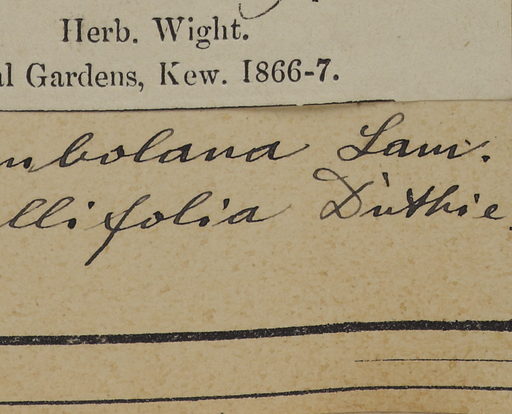 Herb. Wight.
al Gardens, Kew. 1866-7.
mbolana Lam.
llifolia Duthie